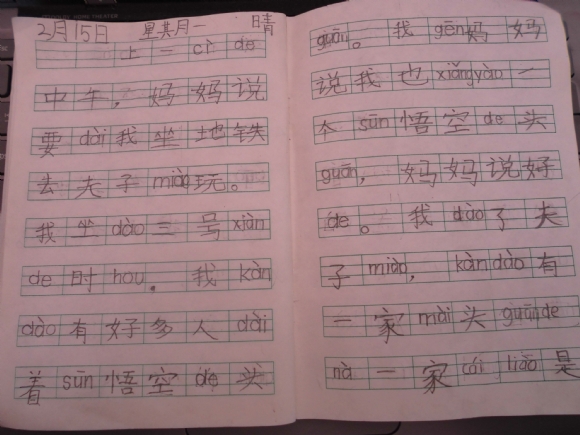 2月15日 星期一 晴
上 cì de
中午，妈妈说
要dài我坐地铁
去夫子miào玩。
我坐dào三号xiàn
de时hou。我kàn
dào有好多人dài
着sūn悟空de头
guān。我gēn妈妈
说我也xiǎngyào一
个sūn悟空de头
guān，妈妈说好
de。我dào了夫
子miào，kàndào有
一家mài头guānde
nà一家cái liào是